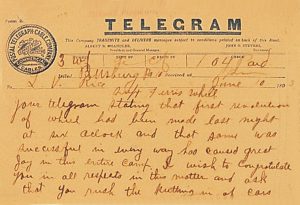 TELEGRAM
This Company TRANSMITS and DELIVERS messages subject to conditions printed on back of this Form.
POSTAL TELEGRAPH-CABLE COMPANY
CABLES
Pittsburg Pa
received at
L. V. Rice
June 10
Supt Ferris Wheel
Your telegram stating that first revolution
of wheel had been made last night
at six oclock and that same was
successful in every way has caused great
joy in this entire camp. I wish to congratulate
you in all respects in this matter and ask
that you rush the putting in of cars